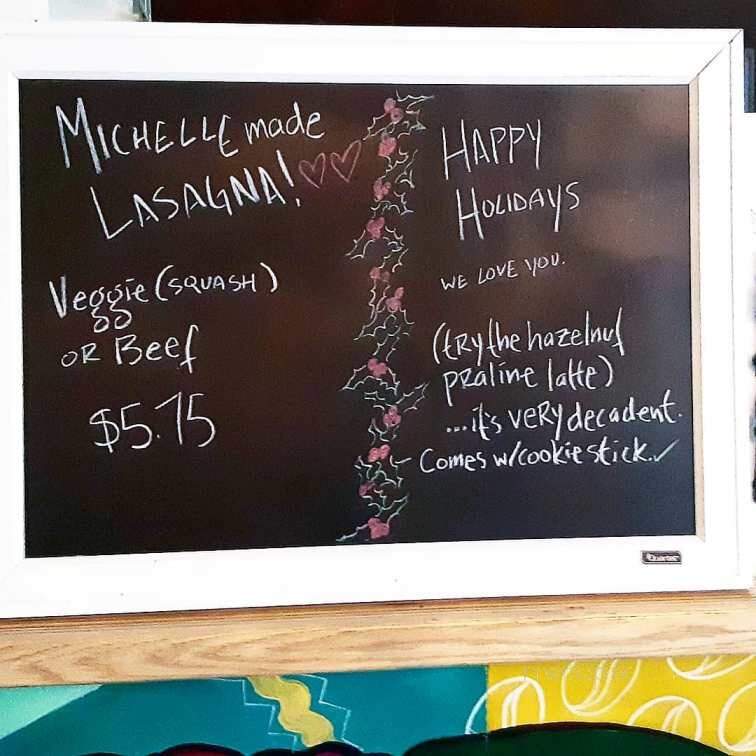 MICHELLE made
LASAGNA!
Veggie (SQUASH)
OR Beef
$5.75
HAPPY
HOLIDAYS
WE LOVE YOU.
(tRy the hazelnut
PRAline latte)
...it's VERy decadent.
Comes w/cookie stick.✓